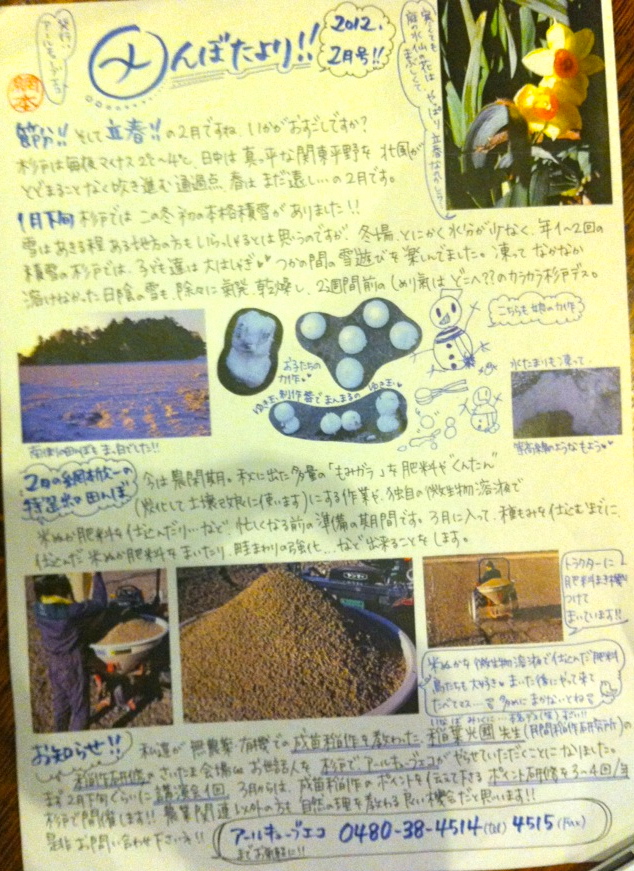 発行:アールキューブエコ
んぼだより!!
2012.
2月号!!
寒くても
庭の水仙の花は
やっぱり立春なのかしら
節分!! そして 立春!! の2月ですね。いかがおすごしですか?
杉戸は毎夜マイナス2℃~4℃、日中は真っ平な関東平野を北風が
とどまることなく吹き進む通過点 春はまだ遠し…の2月です。
1月下旬 杉戸ではこの冬初の本格積雪がありました!!
雪はあきる程ある地方の方もいらっしゃるとは思うのですが、冬場、とにかく水分が少なく、年1~2回の
積雪の杉戸では、子ども達は大はしゃぎ つかの間の雪遊びを楽しんでました。凍ってなかなか
溶けなかった日陰の雪も、除々に気発、乾燥し、2週間前のしめり気はどこへ??のカラカラ杉戸デス。
お子たちの
力作
ゆきだるま制作 皆でまんまるの
こちらも娘の力作
水たまりも凍って…
もよう
田んぼもま、白でした!!
2月の
特選田んぼ
今は農閑期。秋に出た多量の「もみがら」を肥料や"くんたん"
(炭化して土壌改良に使います)にする作業や、独自の微生物溶液で
米ぬか肥料を仕込んだり…など 忙しくなる前の準備の期間です。3月に入って、種もみを仕込むまでに、
仕込んだ米ぬか肥料をまいたり、畦まわりの強化…など出来ることをします。
トラクターに
肥料まき機を
つけて
まいています!!
米ぬかを微生物溶液で仕込んだ肥料
鳥たちも大好き まいた後にやって来て
たべてマス… 多めにまかないとネ
お知らせ!! 私達が無農薬・有機での成苗稲作を教わった、稲葉光國先生(民間稲作研究所)の
稲作研修のさいたま会場のお世話人を杉戸でアールキューブエコがやらせていただくことになりました。
まず2月下旬ぐらいに講演会1回、3月からは、成苗稲作のポイントを伝えて下さるポイント研修を3~4回/ヨ
杉戸で開催します!! 農業関連以外の方も自然の理を教われる良い機会だと思います!!
是非お問い合わせ下さい!!
アールキューブエコ 0480-38-4514(tel) 4515(Fax)
までお気軽に!!